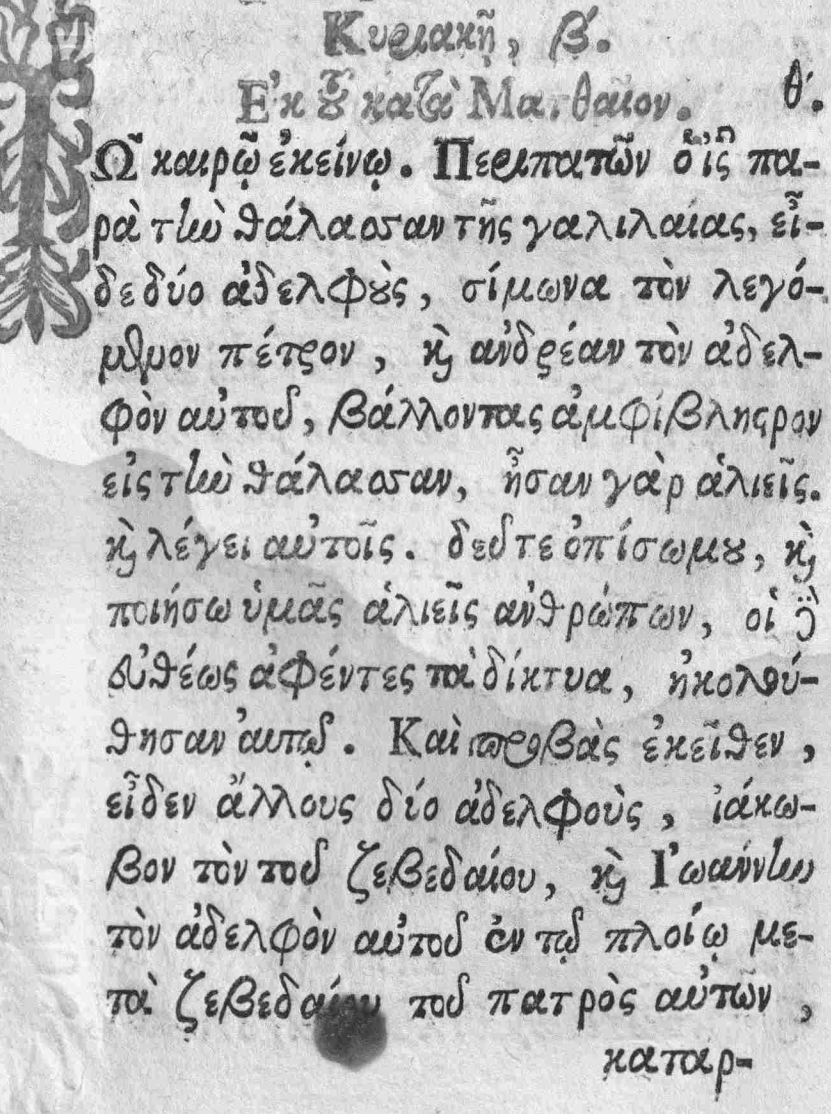 Κυριακῇ, β΄.
Ἐκ τȣ͂ κατὰ Ματθαῖον. θ΄.
Τῼ͂ καιρῷ ἐκείνῳ. Περιπατῶν ὁ ἰς͂ πα-
ρὰ τὴν θάλασσαν τῆς γαλιλαίας, εἶ-
δε δύο ἀδελφȣ̀ς, σίμωνα τὸν λεγό-
μενον πέτρον, ϗ̀ ἀνδρέαν τὸν ἀδελ-
φὸν αὐτοῦ, βάλλοντας ἀμφίβληϛρον
εἰς τὴν θάλασσαν, ἦσαν γὰρ ἁλιεῖς.
ϗ̀ λέγει αὐτοῖς. δεῦτε ὀπίσωμȣ, ϗ̀
ποιήσω ὑμᾶς ἁλιεῖς ἀνθρώπων, οἱ δὲ
εὐθέως ἀφέντες τὰ δίκτυα, ἠκολȣ́-
θησαν αὐτῷ. Καὶ προβὰς ἐκεῖθεν,
εἶδεν ἄλλους δύο ἀδελφοὺς, ἰάκω-
βον τὸν τοῦ ζεβεδαίου, ϗ̀ Ἰωάννην
τὸν ἀδελφὸν αὐτοῦ ἐν τῷ πλοίῳ με-
τὰ ζεβεδαίου τοῦ πατρὸς αὐτῶν,
καταρ-